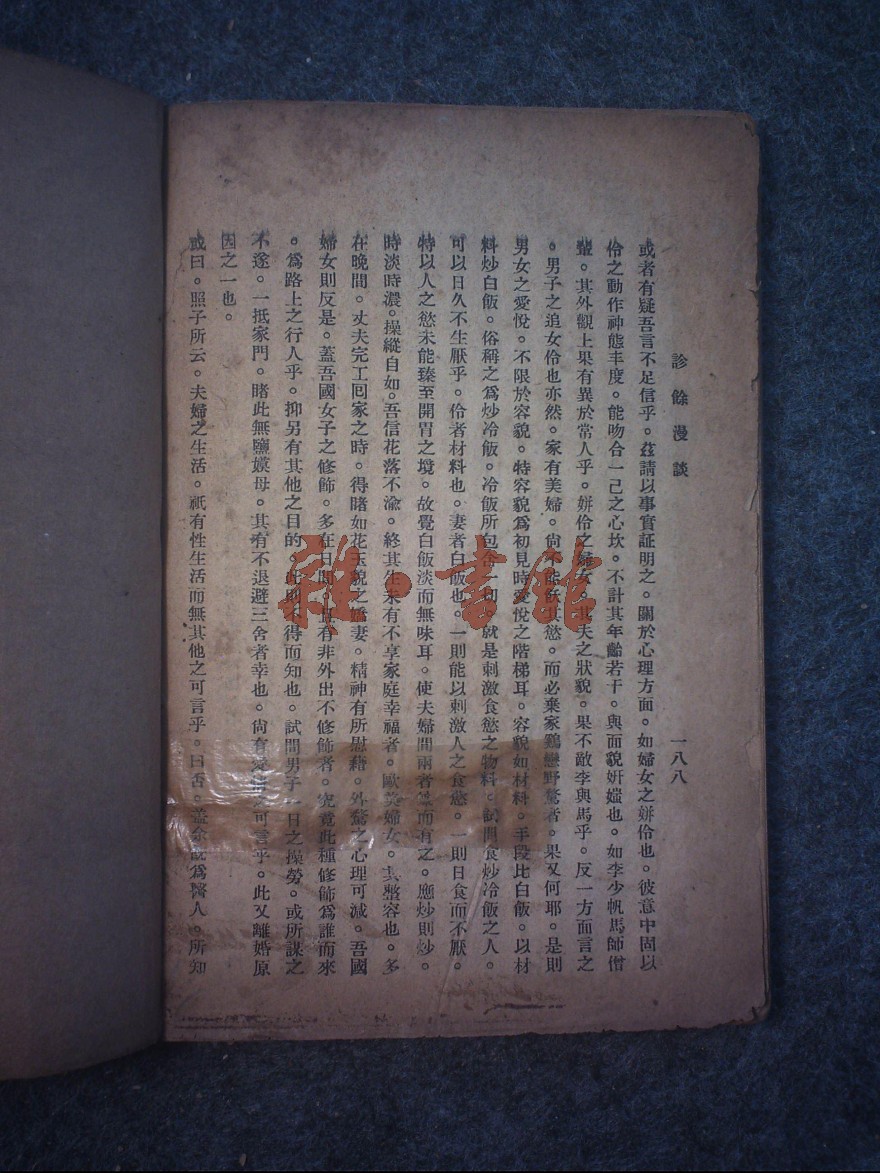 診餘漫談
一八八
或者有疑吾言不足信乎。茲請以事實証明之。關於心理方面。如婦女之姘伶也。彼意中固以
伶之動作神態丰度。能吻合一己之心坎。不計其年齡若干。與面貌妍媸也。如李少帆馬師僧
輩。其外觀上果有異於常人乎。姘伶之婦女。其夫之狀貌。果不敵李與馬乎。反一方面言之
。男子之追女伶也亦然。家有美婦。尙不能飫其慾。而必棄家鷄戀野鶩者。果又何耶。是則
男女之愛悅。不限於容貌。特容貌爲初見時愛悅之階梯耳。容貌如材料。手段比白飯。以材
料炒白飯。俗稱之爲炒冷飯。冷飯所包含一切。就是刺激食慾之物料。試問食炒冷飯之人。
可以日久不生厭乎。伶者材料也。妻者白飯也。一則能以刺激人之食慾。一則日食而不厭。
特以人之慾未能臻至開胃之境。故覺白飯淡而無味耳。使夫婦間兩者兼而有之。應炒則炒。
時淡時濃。操縱自如。吾信花落不淪。終其生未有不享家庭幸福者。歐美婦女。其整容也。多
在晚間。丈夫完工回家之時。得睹如花玉貌之嬌妻。精神有所慰藉。外鶩之心理可減。吾國
婦女則反是。蓋吾國女子之修飾。多在日間。且有非外出不修飾者。究竟此種修飾爲誰而來
。爲路上之行人乎。抑另有其他之目的。此則不得而知也。試問男子一日之操勞。或所謀之
不遂。一抵家門。睹此無鹽嫫母。其有不退避三舍者幸也。尙有愛情之可言乎。此又離婚原
因之一也。
或曰。照子所云。夫婦之生活。祇有性生活而無其他之可言乎。曰否。蓋余旣爲醫人。所知
雜·書館